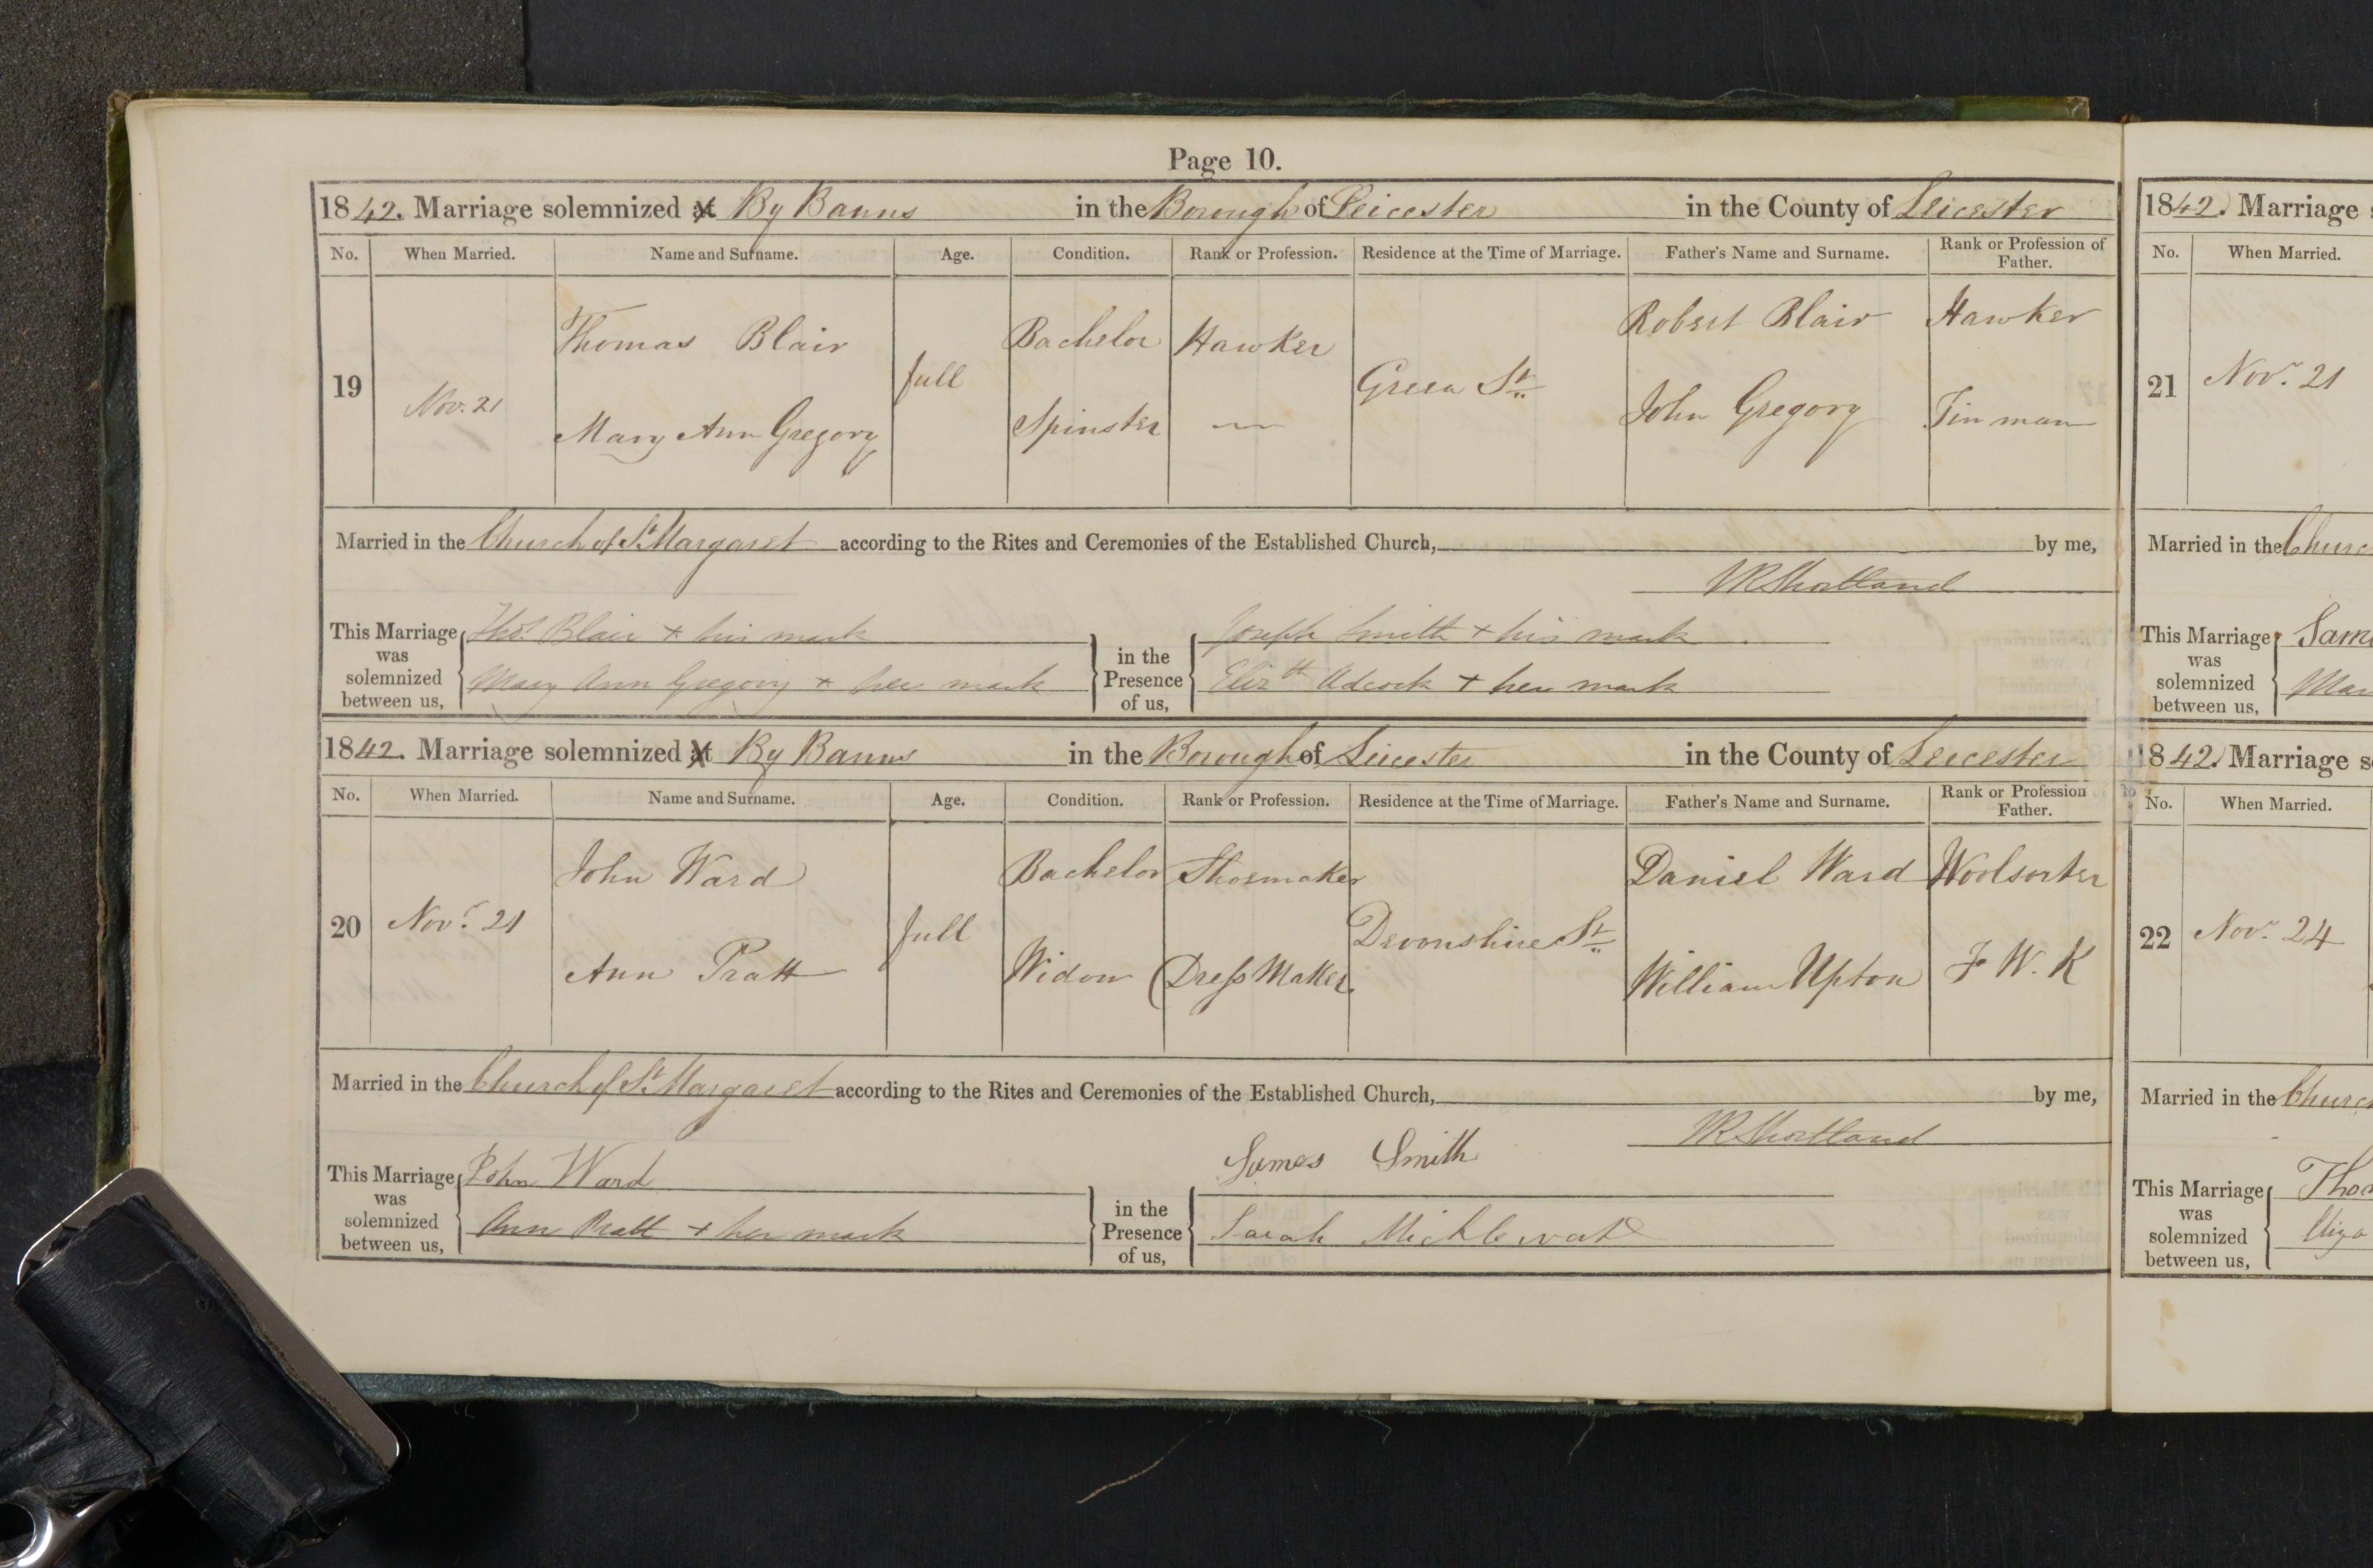 Page 10.
1842. Marriage solemnized at By Banns in the Borough of Leicester in the County of Leicester
No. When Married. Name and Surname. Age. Condition. Rank or Profession. Residence at the Time of Marriage. Father's Name and Surname. Rank or Profession of Father.
19 Nov. 21 Thomas Blair full Bachelor Hawker Green St. Robert Blair Hawker
Mary Ann Gregory Spinster — John Gregory Tin man
Married in the Church of St. Margaret according to the Rites and Ceremonies of the Established Church, by me,
This Marriage was solemnized between us, Thos. Blair + his mark in the Presence of us, Joseph Smith + his mark
Mary Ann Gregory + her mark Elizth Adcock + her mark
1842. Marriage solemnized at By Banns in the Borough of Leicester in the County of Leicester
No. When Married. Name and Surname. Age. Condition. Rank or Profession. Residence at the Time of Marriage. Father's Name and Surname. Rank or Profession Father.
20 Novr. 21 John Ward full Bachelor Shoemaker Devonshire St. Daniel Ward Woolsorter
Ann Pratt Widow Dress Maker William Upton F. W. K
Married in the Church of St. Margaret according to the Rites and Ceremonies of the Established Church, by me,
This Marriage was solemnized between us, John Ward in the Presence of us, James Smith
Ann Pratt + her mark Sarah
1842. Marriage
No. When Married.
21 Novr. 21
Married in the
This Marriage was solemnized between us,
1842. Marriage
No. When Married.
22 Novr. 24
Married in the
This Marriage was solemnized between us,